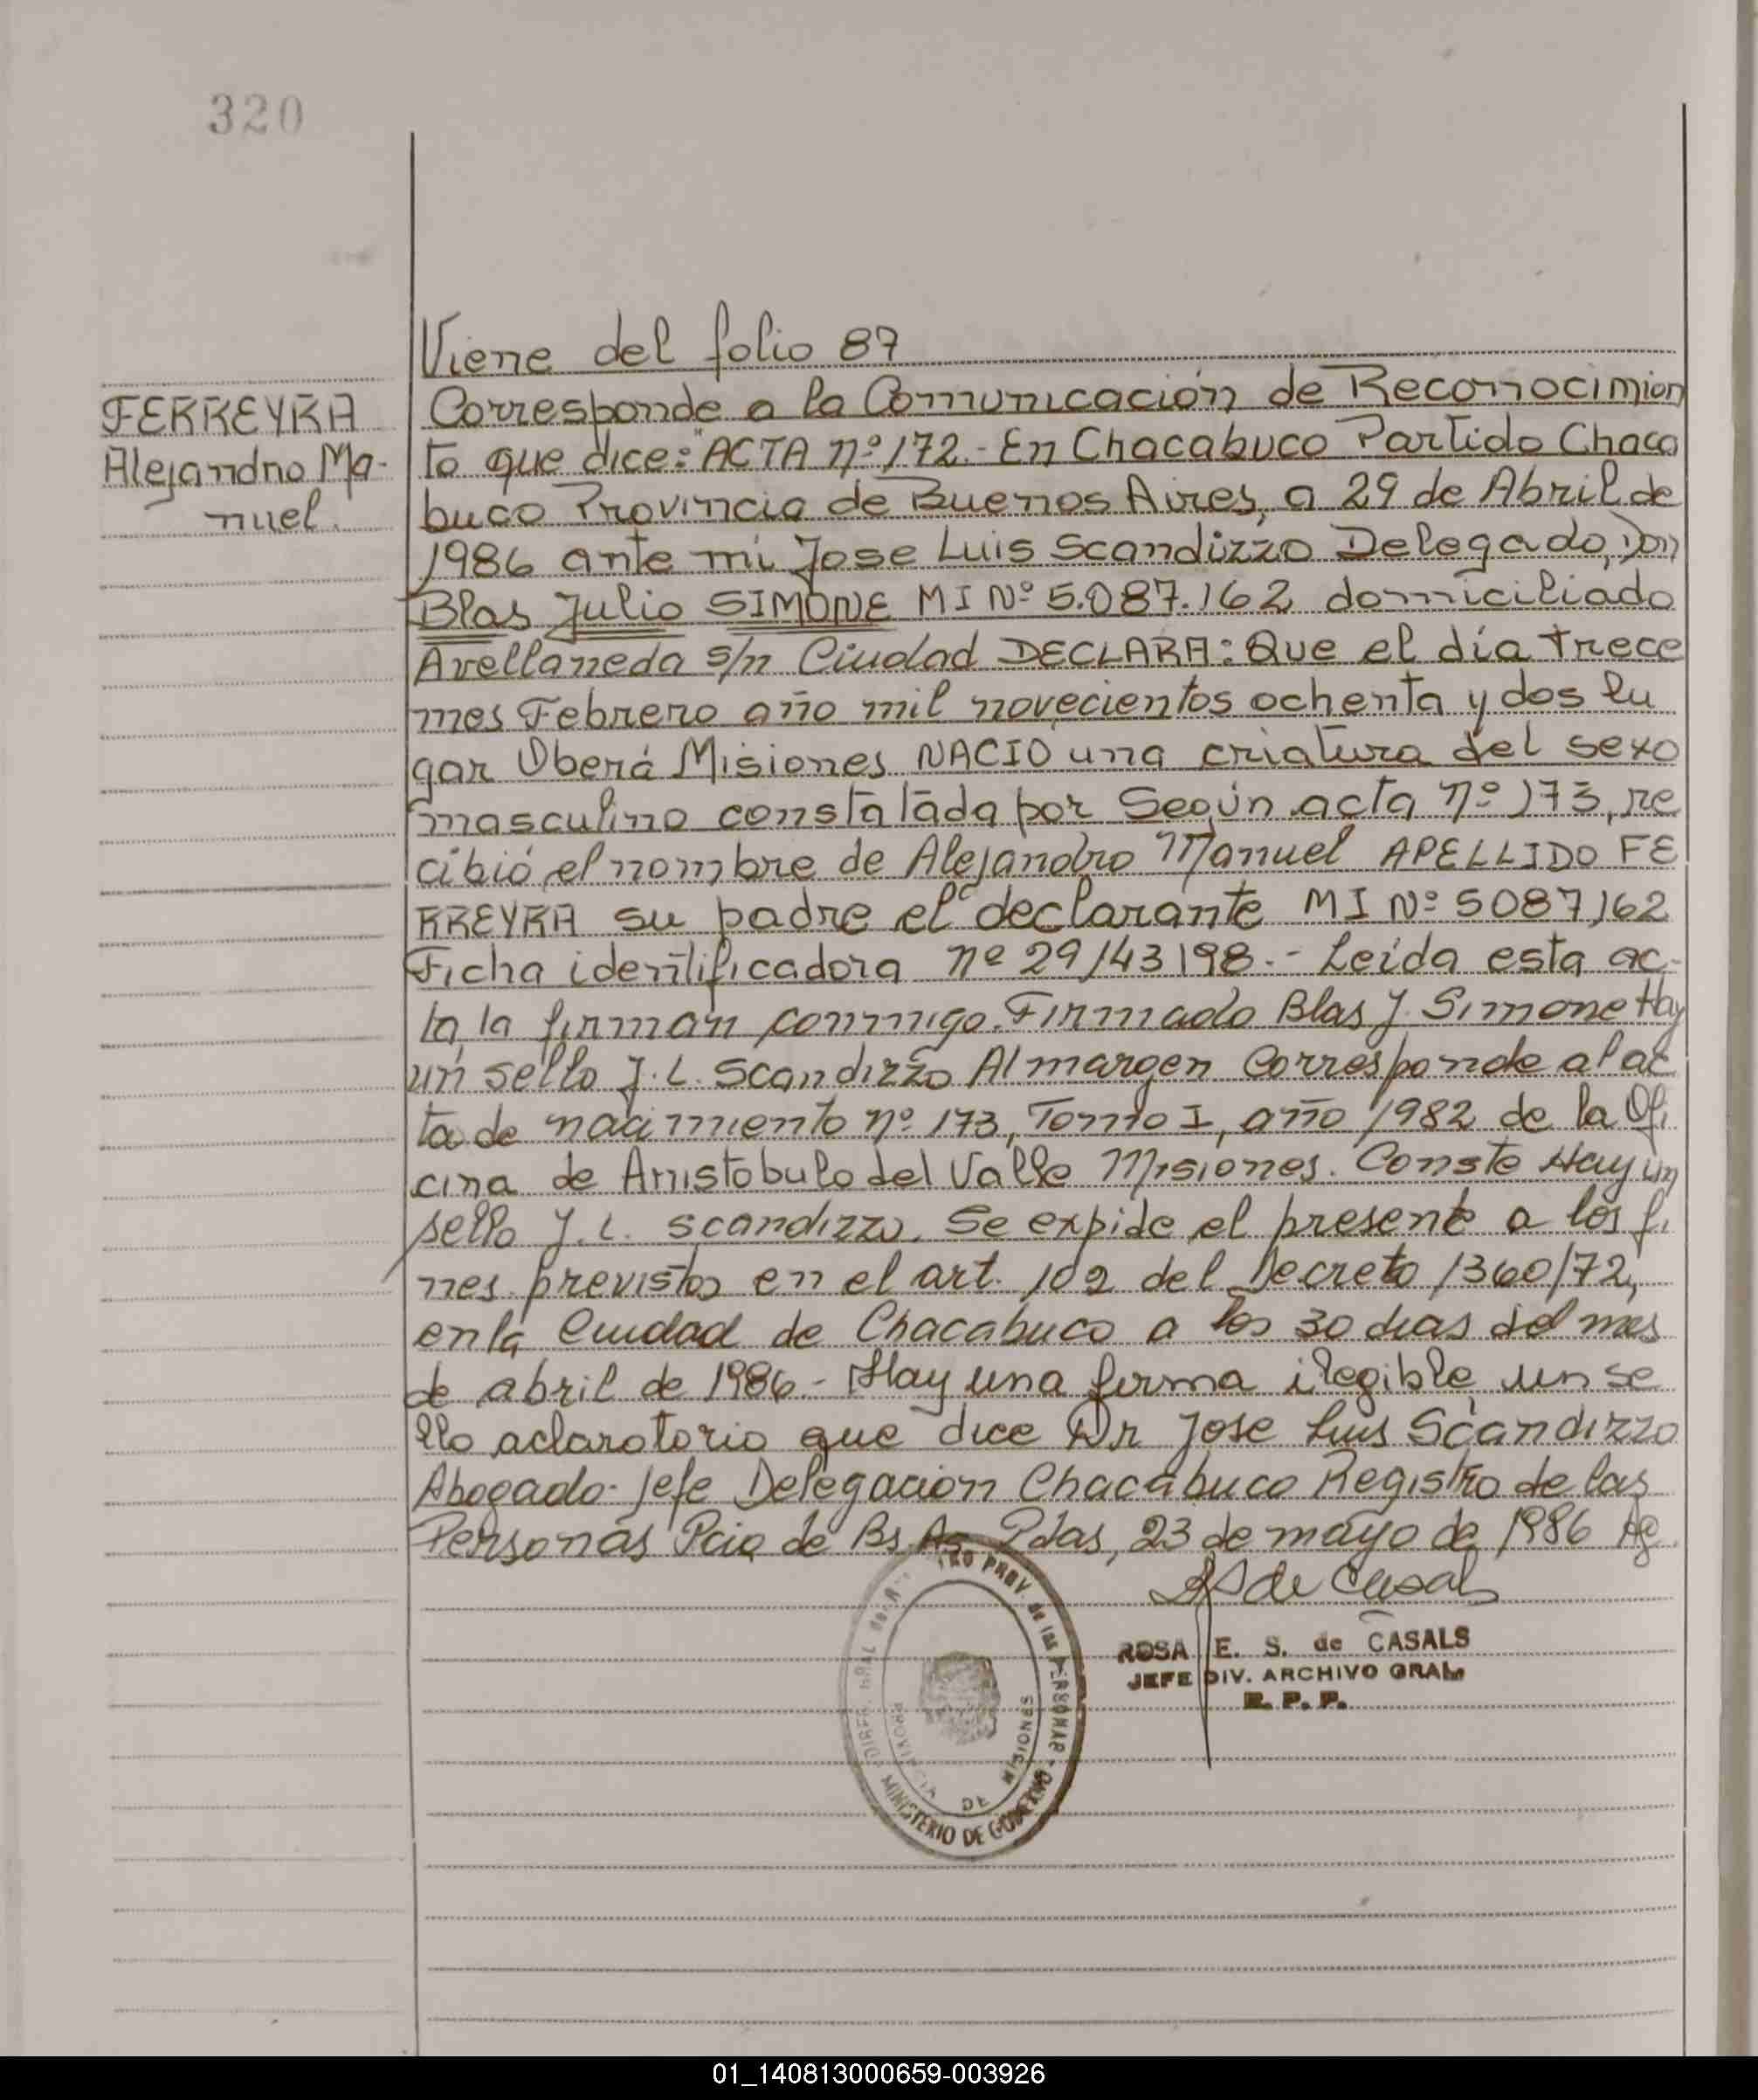 320
Viene del folio 87
FERREYRA
Alejandro Ma-
nuel.
Corresponde a la Comunicación de Reconocimien
to que dice: "ACTA nº 172.- En Chacabuco Partido Chaca
buco Provincia de Buenos Aires, a 29 de Abril de
1986 ante mi Jose Luis Scandizzo Delegado, Don
Blas Julio SIMONE MI Nº 5.087.162 domiciliado
Avellaneda s/n Ciudad DECLARA: Que el día trece
mes Febrero año mil novecientos ochenta y dos lu
gar Oberá Misiones NACIO una criatura del sexo
masculino constatada por Según acta nº 173, re
cibió el nombre de Alejandro Manuel APELLIDO FE
RREYRA su padre el declarante MI Nº 5087162
Ficha identificadora nº 29143198.- Leída esta ac-
ta la firman conmigo. Firmado Blas J. Simone Hay
un sello J. L. Scandizzo Al margen Corresponde al ac
ta de nacimiento nº 173, Tomo I, año 1982 de la Ofi
cina de Aristobulo del Valle Misiones. Conste Hay un
sello J. L. Scandizzo. Se expide el presente a los fi
nes previstos en el art. 102 del Decreto 1360/72,
en la Ciudad de Chacabuco a los 30 dias del mes
de abril de 1986 - Hay una firma ilegible un se
llo aclaratorio que dice Dr Jose Luis Scandizzo
Abogado- Jefe Delegación Chacabuco Registro de las
Personas Pcia de Bs. As. Pdas, 23 de mayo de 1986
de Casals
ROSA E. S. de CASALS
JEFE DIV. ARCHIVO GRAL
R. P. P.
PROV. de las PERSONAS
MINISTERIO DE GOBIERNO
PROVINCIA DE MISIONES
01_140813000659-003926